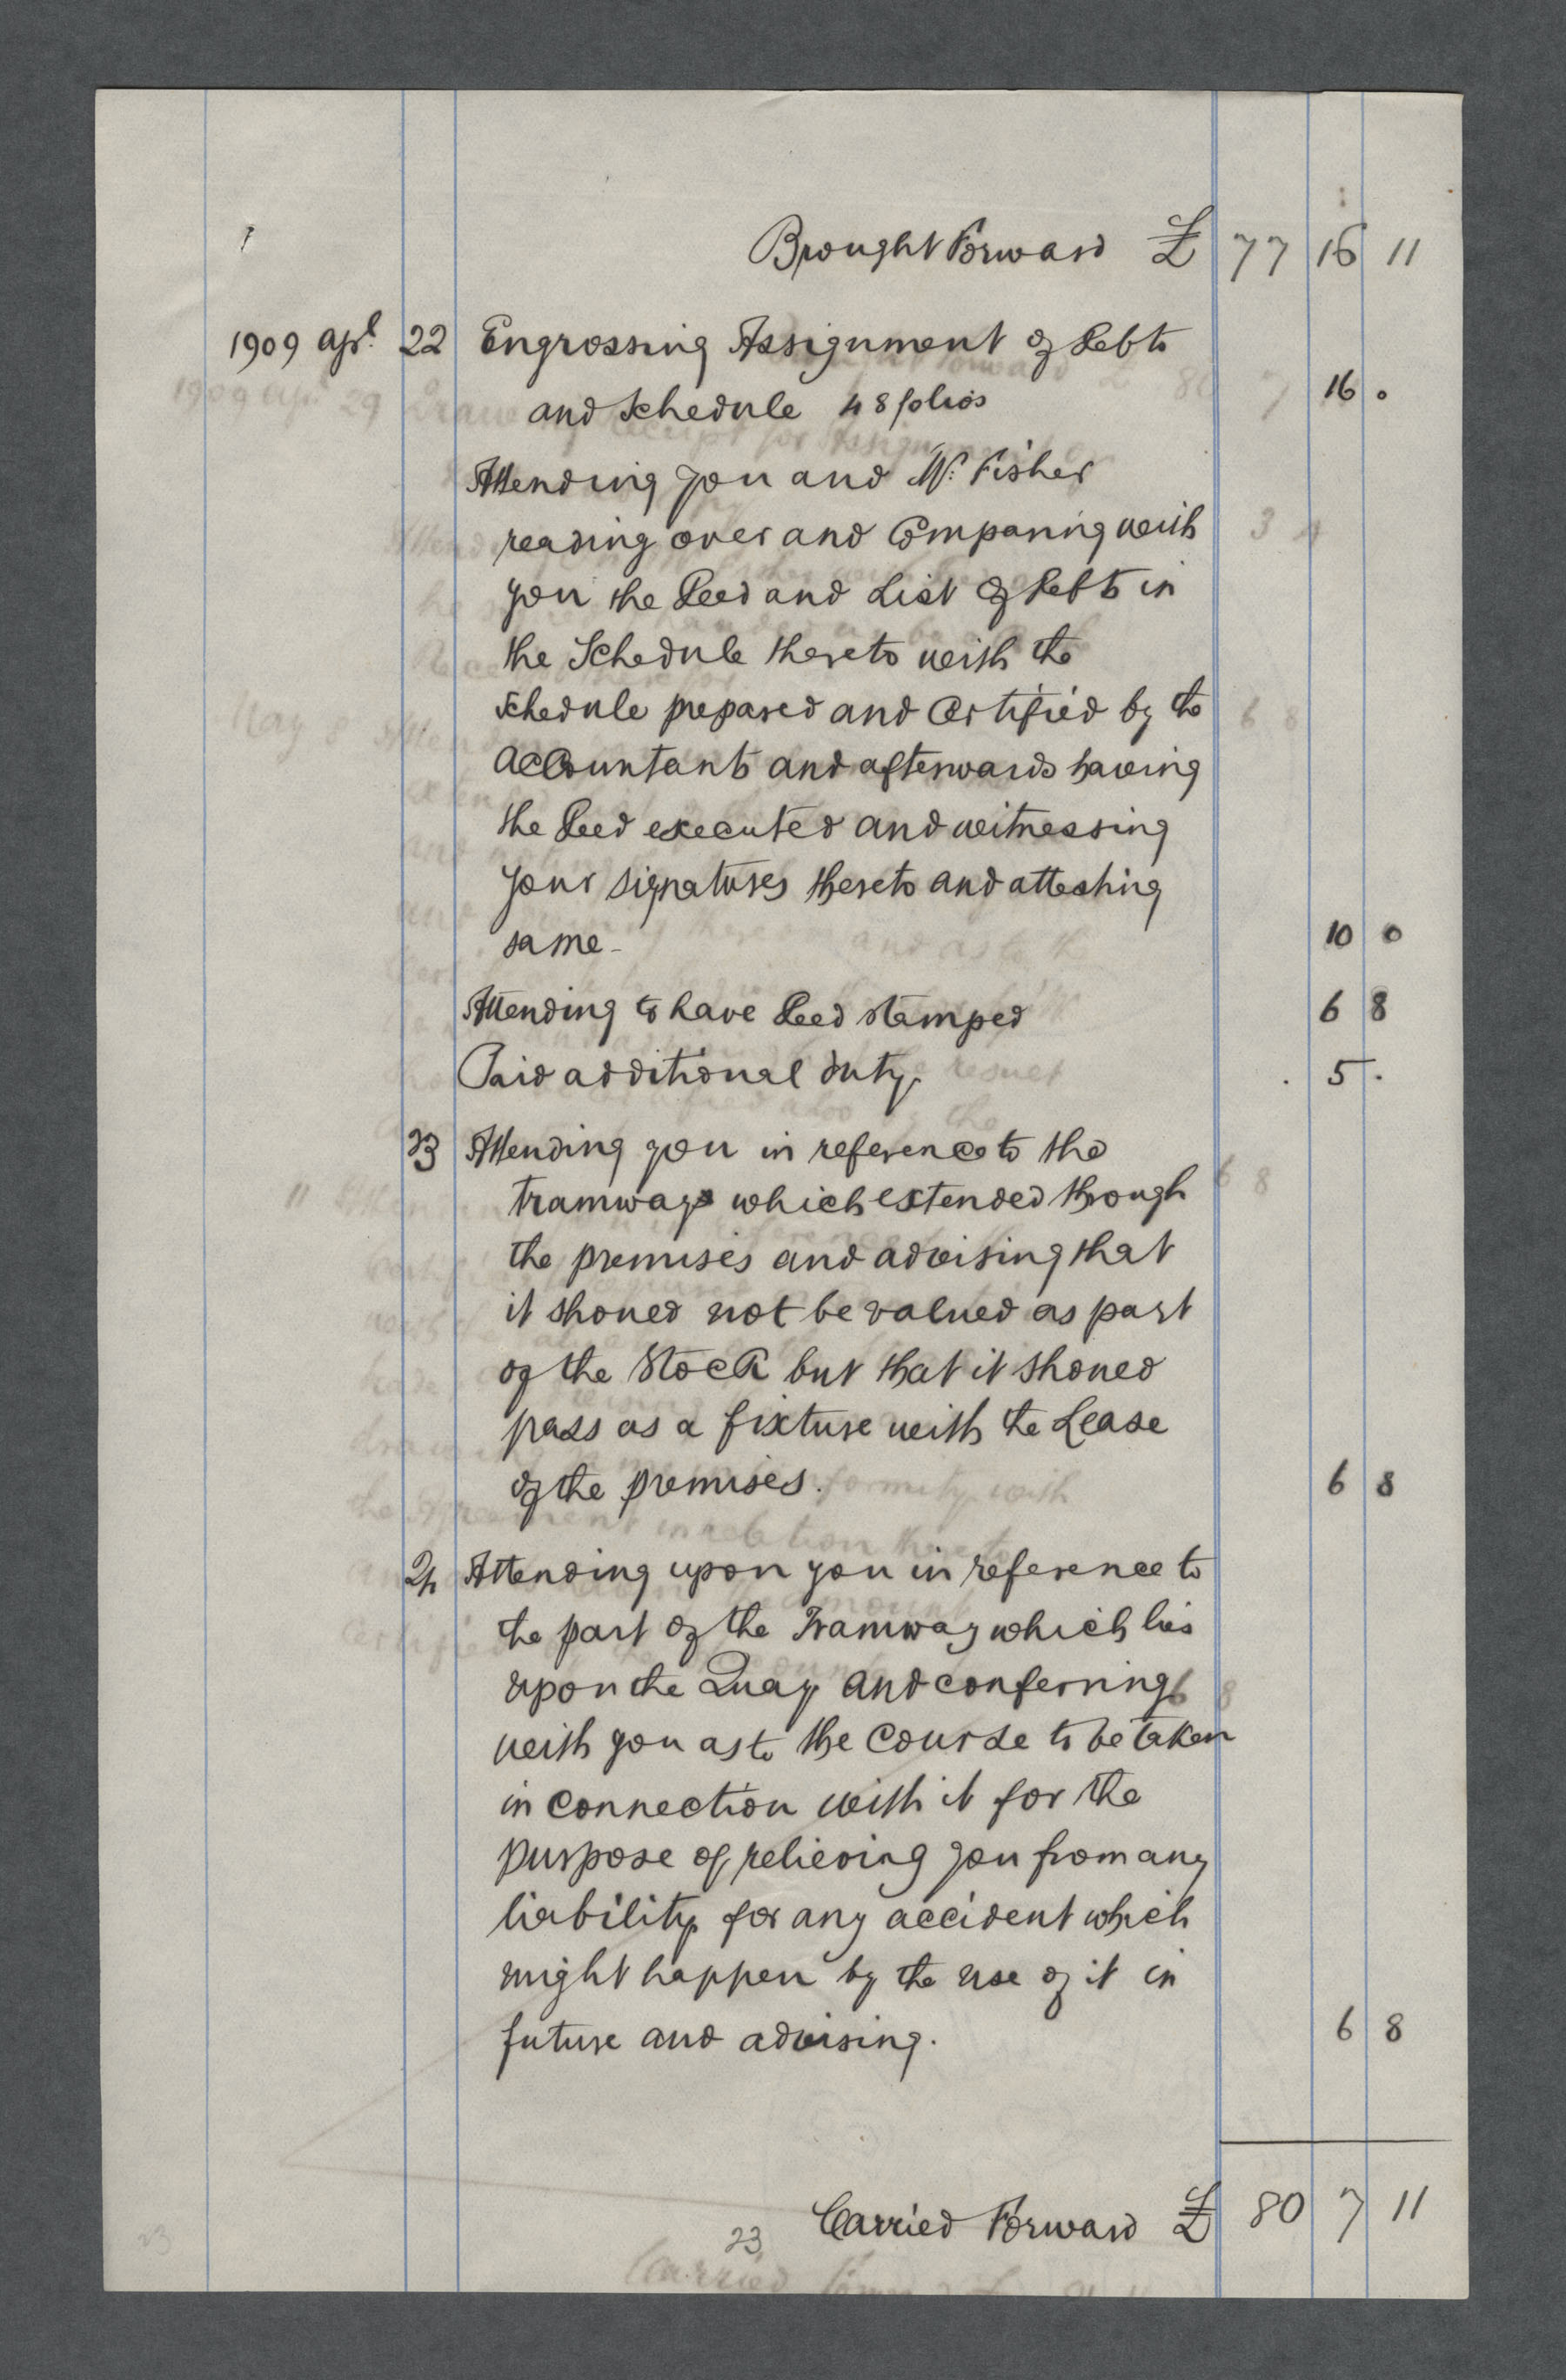 Brought Forward £ 77 16 11
1909 Apl. 22 Engrossing Assignment of Debts
and Schedule 48 folios 16 .
Attending you and Mr. Fisher
reading over and Comparing with
you the Deed and List of Debts in
the Schedule thereto with the
Schedule prepared and Certified by the
Accountants and afterwards having
the Deed executed and witnessing
your signatures thereto and attesting
same - 10 0
Attending to have Deed stamped 6 8
Paid additional duty. . 5 .
23 Attending you in reference to the
tramways which extended through
the premises and advising that
it should not be valued as part
of the Stock but that it should
pass as a fixture with the Lease
of the premises. 6 8
24 Attending upon you in reference to
the part of the Tramway which lies
upon the Quay and conferring
with you as to the Course to be taken
in connection with it for the
purpose of relieving you from any
liability for any accident which
might happen by the use of it in
future and advising. 6 8
Carried Forward £ 80 7 11
23